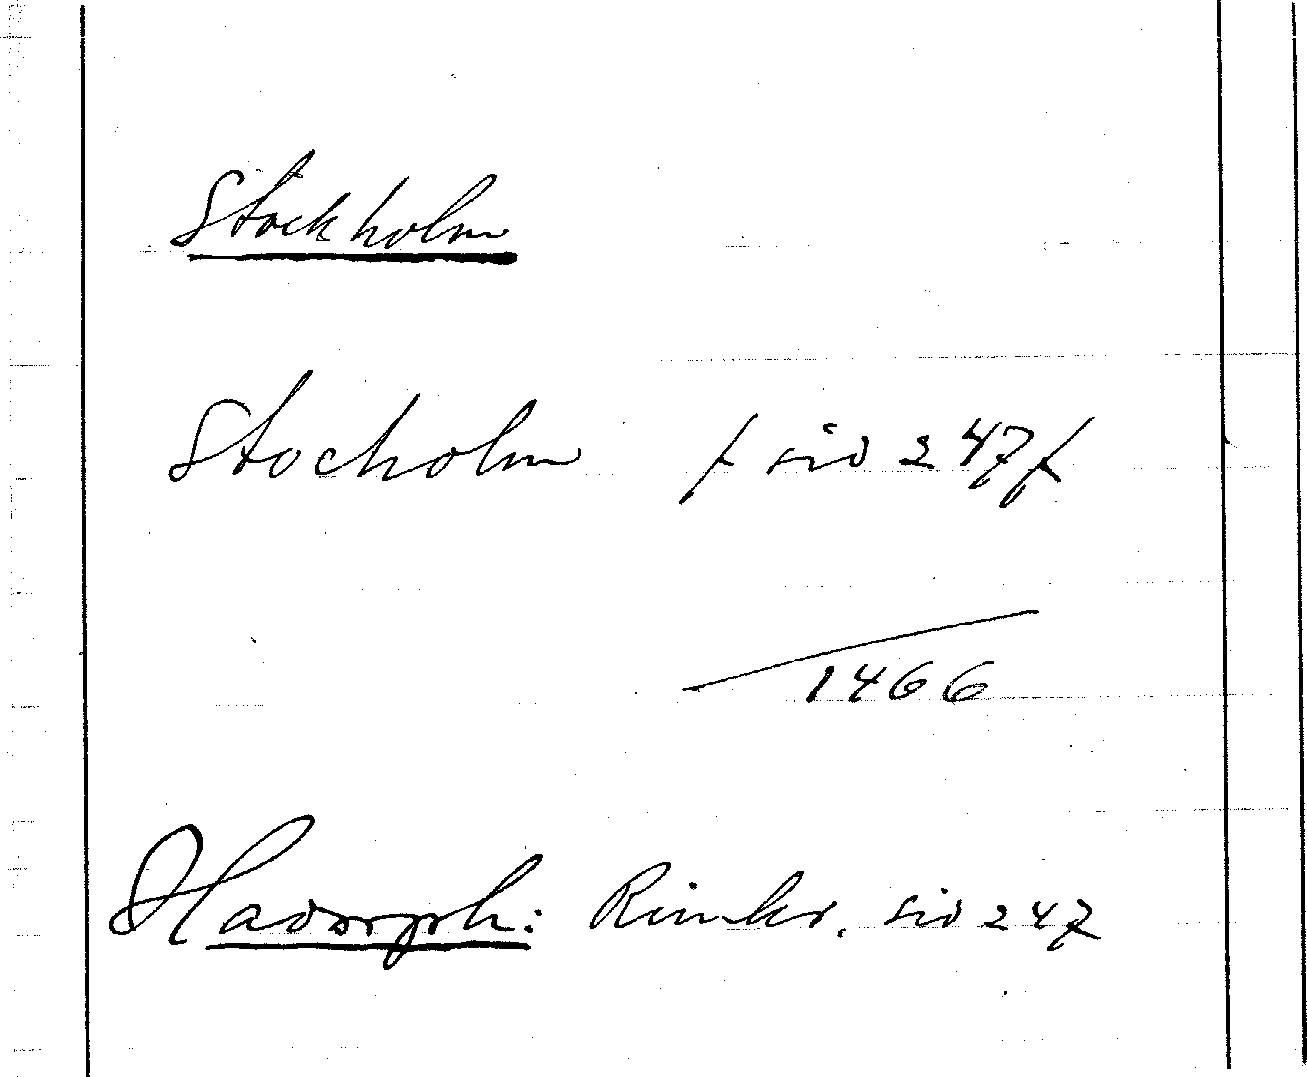 Stockholm
Stocholm / sid 247 /
1466
Hadorph: Rimkr. sid 247